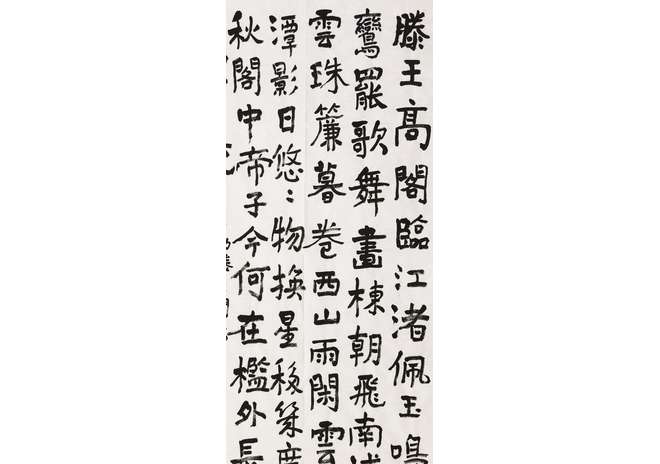 滕王高閣臨江渚佩玉鳴
鸞罷歌舞畫棟朝飛南浦
雲珠簾暮卷西山雨閑雲
潭影日悠〻物換星移幾度
秋閣中帝子今何在檻外長